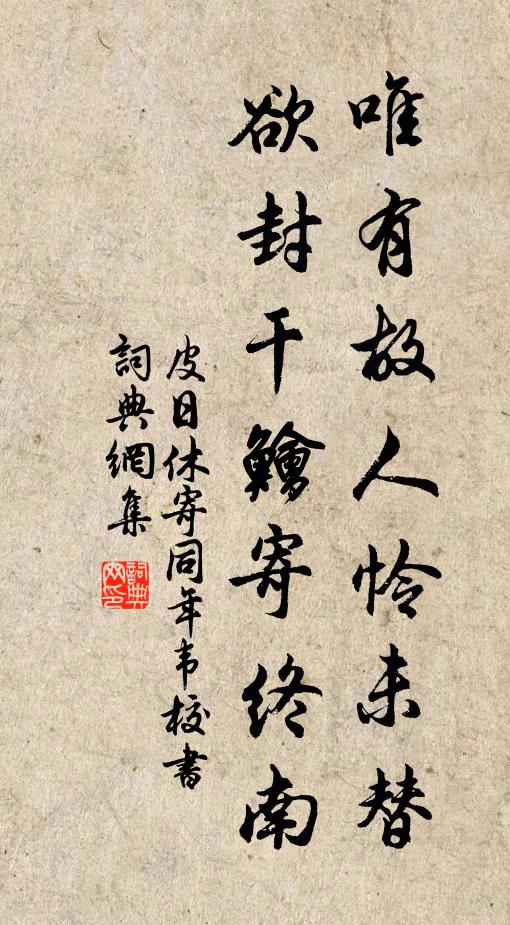 唯有故人怜未替
欲封干鱠寄终南
皮日休寄同年韦校书
詞典網集
詞典网印